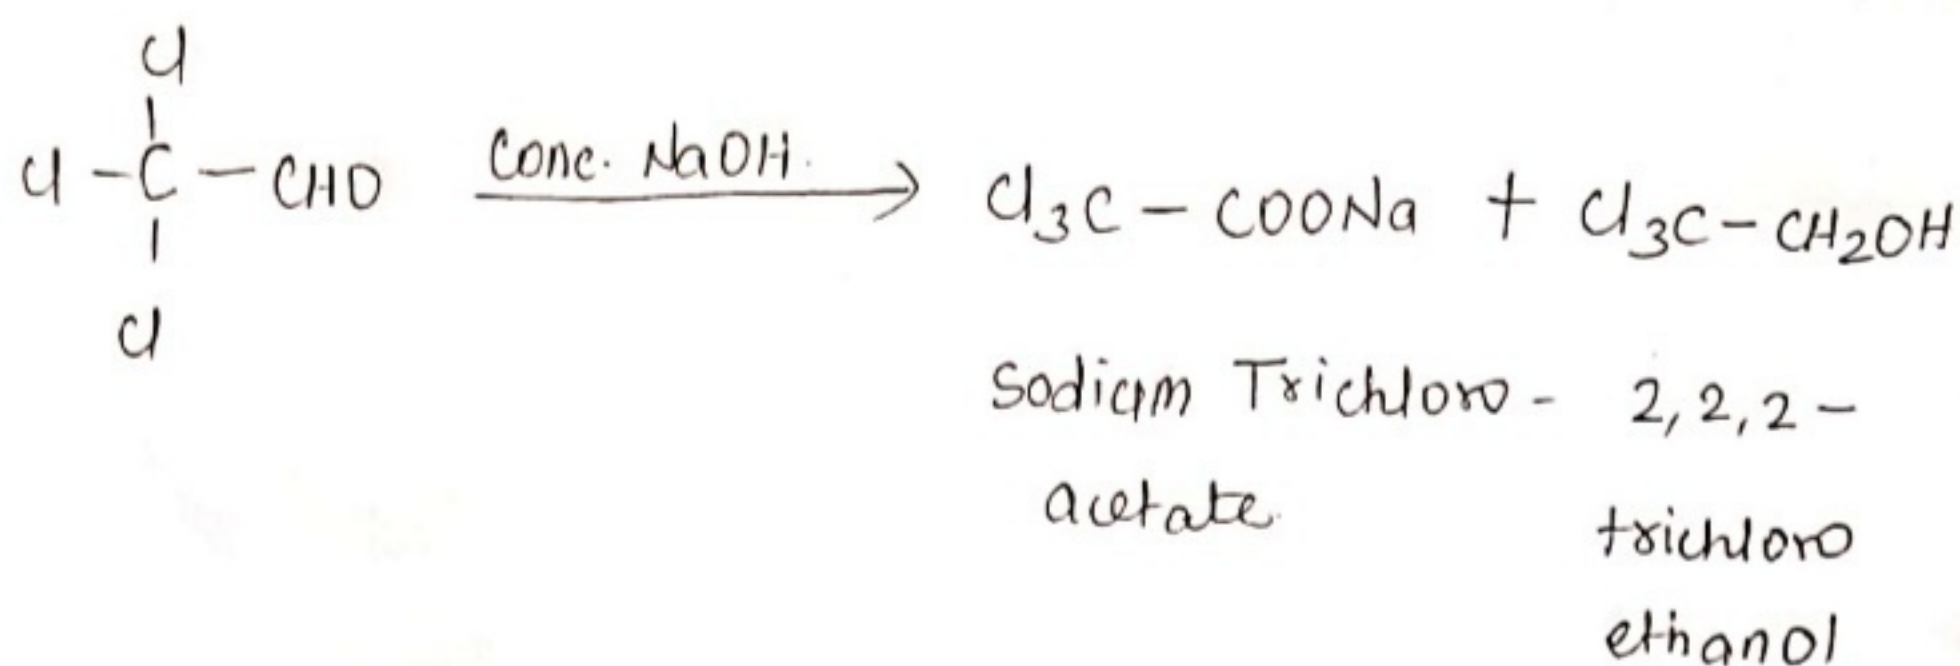 Cl
Cl - C - CHO
Cl
Conc. NaOH.
Cl₃C - COONa + Cl₃C - CH₂OH
Sodium Trichloro - 2, 2, 2 -
acetate.
trichloro
ethanol